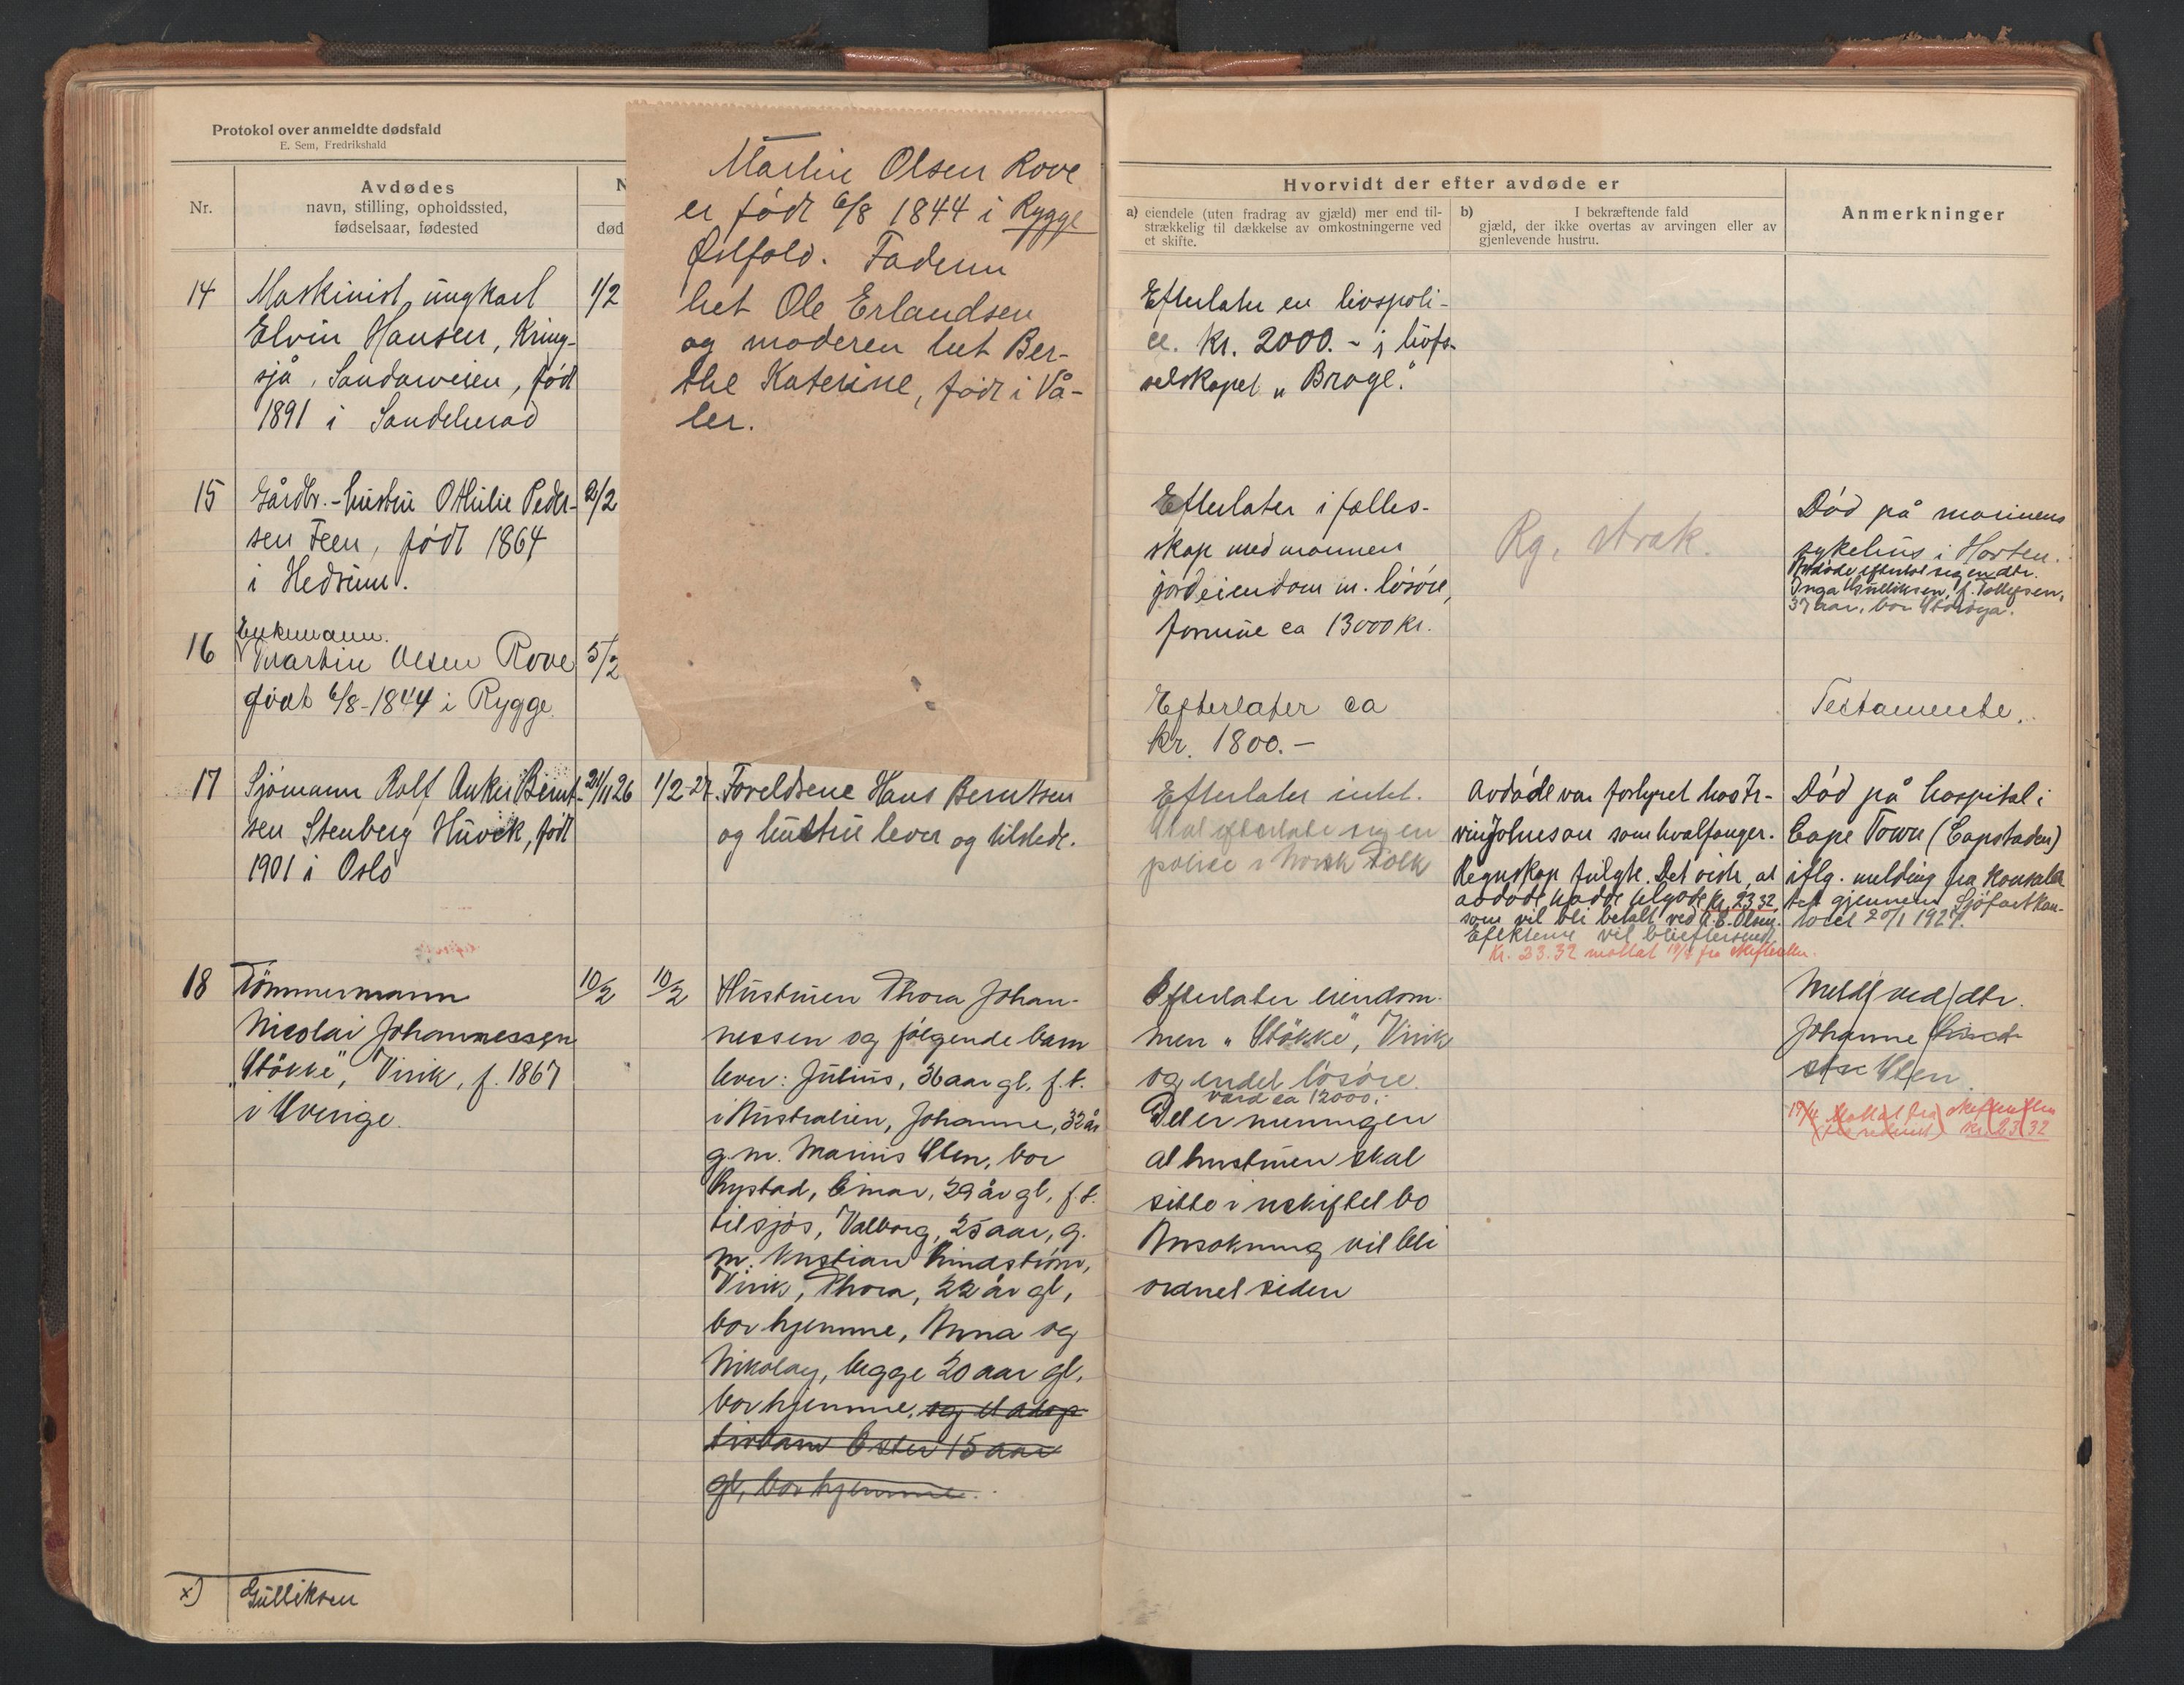 Protokol over anmeldte dødsfald
E. Sem, Fredrikshald
Nr.
Avdødes
navn, stilling, opholdssted,
fødselsaar, fødested
N
død
Martin Olsen Rove
er født 6/8 1844 i Rygge
Østfold. Faderen
het Ole Erlandsen
og moderen het Ber-
the Katerine, født i Vå-
ler.
Hvorvidt der efter avdøde er
a) eiendele (uten fradrag av gjæld) mer end til-
strækkelig til dækkelse av omkostningerne ved
et skifte.
b) I bekræftende fald
gjæld, der ikke overtas av arvingen eller av
gjenlevende hustru.
Anmerkninger
14 Maskinist, ungkarl 1/2
Elvin Hansen, Kring-
sjå, Sandarveien, født
1891 i Sandeherad
Efterlater en livspoli-
ce. kr. 2000.- i livsfs-
selskapet "Brage."
15 Gårdbr.-hustru Othilie Peder- 2/2
sen Feen, født 1864
i Hedrum.
Efterlater i felles-
skap med mannen
jordeiendom m. løsøre,
formue ca 13000 kr.
Rg. strak.
Død på marinens
sykehus i Horten.
Avdøde efterlot sig en dtr.
Inga Gulliksen, f. Tollefsen,
37 aar, bor
16 Enkemann.
Martin Olsen Rove 5/2
født 6/8-1844 i Rygge.
Efterlater ca
kr. 1800.-
Testamente.
17 Sjømann Rolf Anker Bernt- 21/11 26 1/2-27.
sen Stenberg Huvik, født
1901 i Oslo
Foreldrene Hans Berntsen
og hustru lever og tilstede.
Efterlater intet.
Skal efterlate sig en
police i Norsk Folk
Avdøde var forhyret hos Ir-
vin Johnson som hvalfanger.
Regnskap fulgte. Det viste, at
avdøde hadde tilgode kr. 23.32
som vil bli betalt ved A.E. Olsen.
Efektene vil bli eftersendt
Kr. 23.32 mottat 19/4 fra skifteretten.
Død på hospital i
Cape Town (Capstaden)
iflg. melding fra konsula-
tet gjennem Sjøfartskon-
toret 20/1 1927.
18 Tømmermann 10/2 10/2
Nicolai Johannessen
"Støkke", Virik, f. 1867
i Sverige.
Hustruen Thora Johan-
nessen og følgende barn
lever: Julius, 36 aar gl. f.t.
i Australien, Johanne, 32 år
g.m. Marius Steen, bor
Nystad, Einar, 29 år gl, f.t.
tilsjøs, Valborg, 25 aar, g.
m. Kristian Lindstrøm,
Virik, Thora, 22 år gl,
bor hjemme, Anna og
Nikolay, begge 20 aar gl,
bor hjemme, og et adop-
tivbarn Ester 15 aar
gl, bor hjemme.
Efterlater eiendom-
men "Støkke", Virik
og endel løsøre.
værd ca 12000.-
Det er meningen
at hustruen skal
sitte i uskiftet bo
Ansøkning vil bli
ordnet siden
Meldt ved dtr.
Johanne
19/4 Mottat fra skifteretten
kr. 23.32
x) Gulliksen